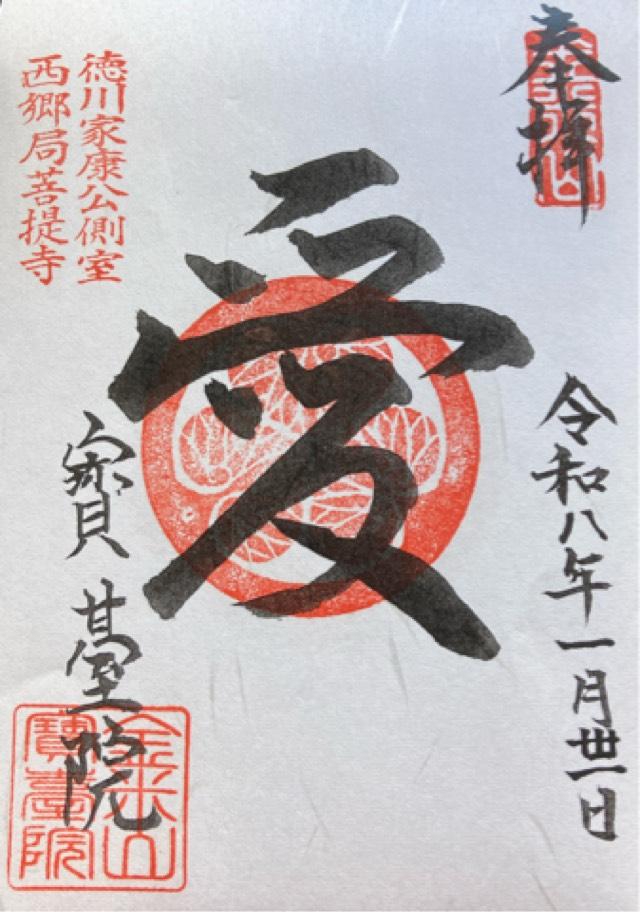 奉拝
金米山
令和八年一月丗一日
愛
徳川家康公側室
西郷局菩提寺
寳臺院
金米山
寳臺院